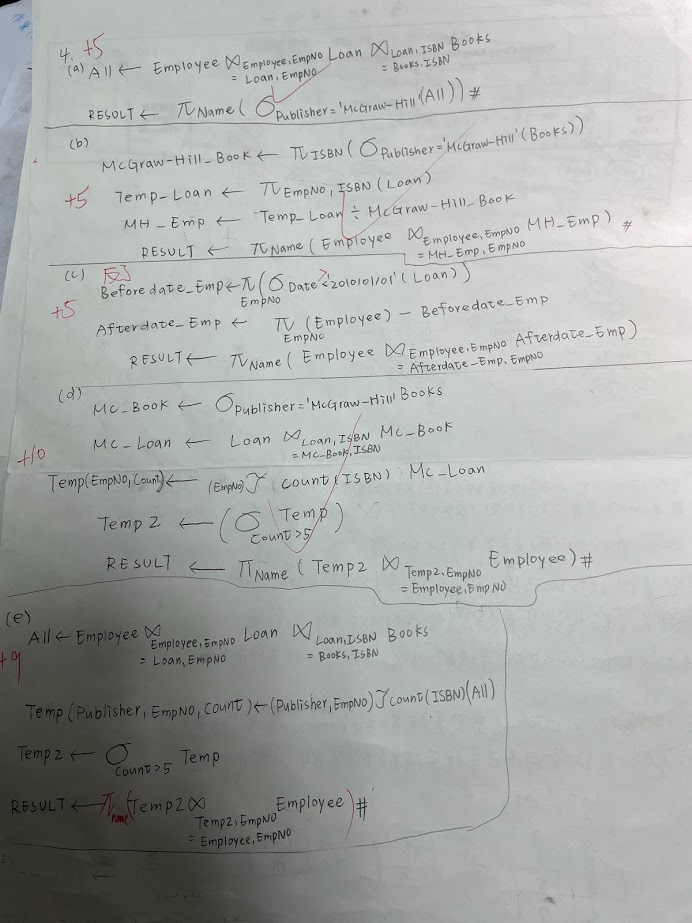 4. +5
(a) All ← Employee ⋈ Employee.EmpNo = Loan.EmpNo Loan ⋈ Loan.ISBN = Books.ISBN Books
RESULT ← π Name ( σ Publisher='McGraw-Hill' (All)) #
(b)
McGraw-Hill_Book ← π ISBN ( σ Publisher='McGraw-Hill' (Books))
+5
Temp_Loan ← π EmpNo, ISBN (Loan)
MH_Emp ← Temp_Loan ÷ McGraw-Hill_Book
RESULT ← π Name ( Employee ⋈ Employee.EmpNo = MH_Emp.EmpNo MH_Emp ) #
(c) 反
Beforedate_Emp ← π EmpNo ( σ Date > < '2010101' (Loan))
+5
Afterdate_Emp ← π EmpNo (Employee) - Beforedate_Emp
RESULT ← π Name ( Employee ⋈ Employee.EmpNo = Afterdate_Emp.EmpNo Afterdate_Emp)
(d)
MC_Book ← σ Publisher='McGraw-Hill' Books
MC_Loan ← Loan ⋈ Loan.ISBN = MC_Book.ISBN MC_Book
+10
Temp(EmpNo, Count) ← (EmpNo) ℱ count(ISBN) MC_Loan
Temp2 ← ( σ Count>5 Temp )
RESULT ← π Name ( Temp2 ⋈ Temp2.EmpNo = Employee.EmpNo Employee) #
(e)
All ← Employee ⋈ Employee.EmpNo = Loan.EmpNo Loan ⋈ Loan.ISBN = Books.ISBN Books
+9
Temp (Publisher, EmpNo, Count) ← (Publisher, EmpNo) ℱ count(ISBN)(All)
Temp2 ← σ Count>5 Temp
RESULT ← π name ( Temp2 ⋈ Temp2.EmpNo = Employee.EmpNo Employee ) #